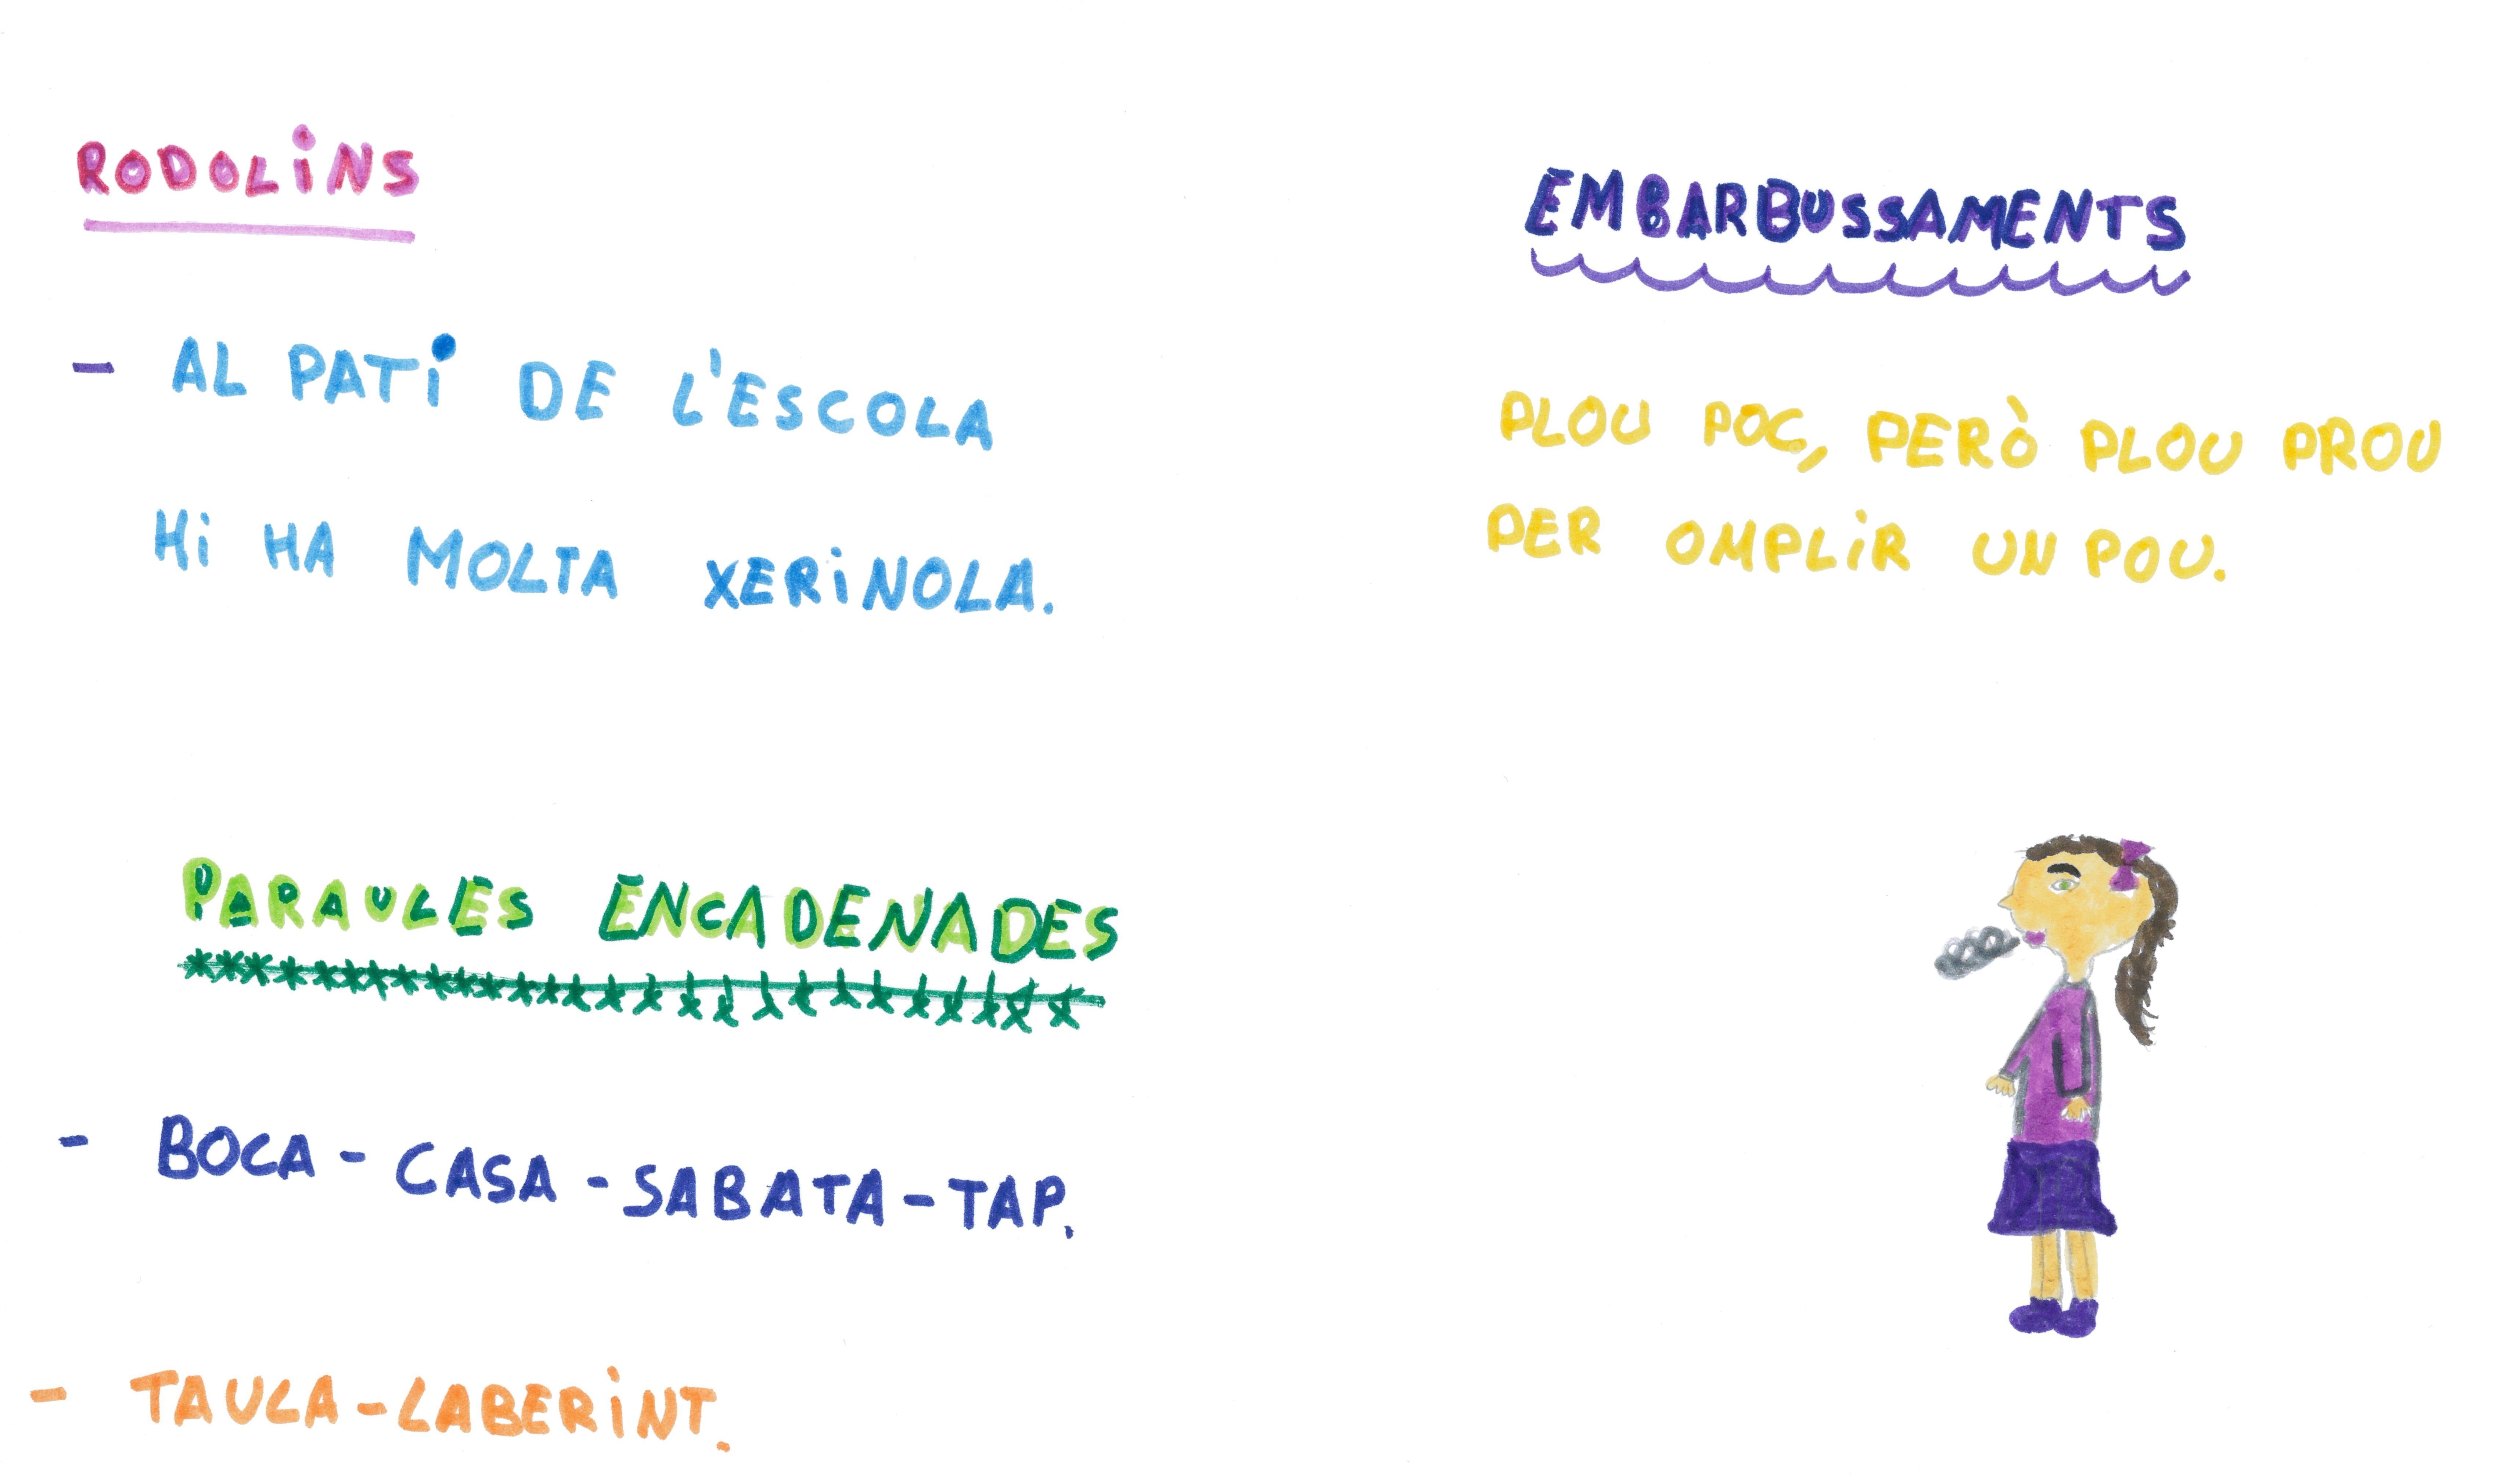 RODOLiNS
- AL PATi DE L'ESCOLA
Hi HA MOLTA XERiNOLA.
PARAULES ENCADENADES
- BOCA - CASA - SABATA - TAP.
- TAULA - LABERiNT.
EMBARBUSSAMENTS
PLOU POC, PERÒ PLOU PROU
PER OMPLiR UN POU.